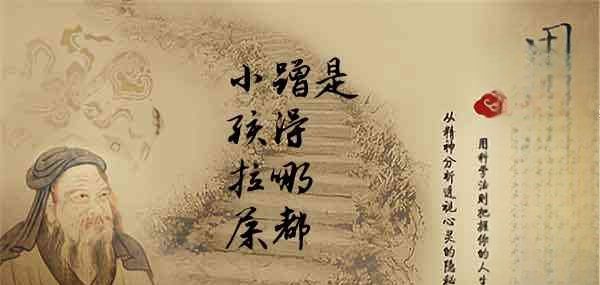 小孩拉屎
蹭得哪都
是
用科学法则把握你的人生
从精神分析透视心灵的隐秘